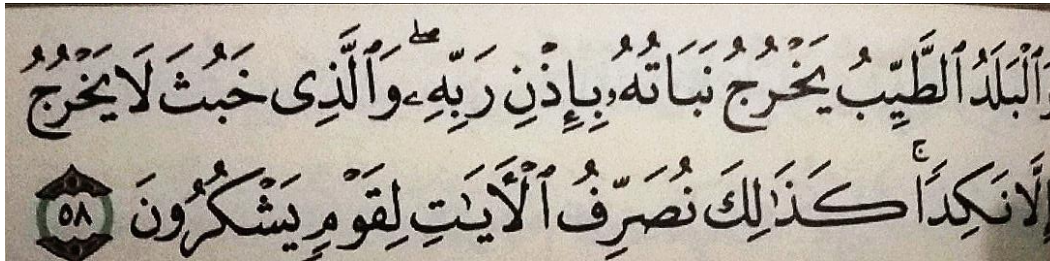 وَٱلْبَلَدُ ٱلطَّيِّبُ يَخْرُجُ نَبَاتُهُۥ بِإِذْنِ رَبِّهِۦۖ وَٱلَّذِى خَبُثَ لَا يَخْرُجُ
إِلَّا نَكِدًاۚ كَذَٰلِكَ نُصَرِّفُ ٱلْـَٔايَـٰتِ لِقَوْمٍ يَشْكُرُونَ ٥٨